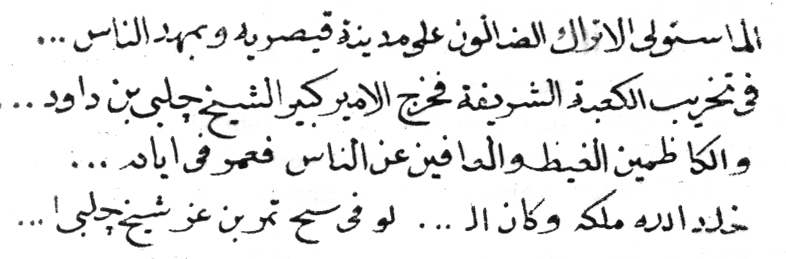 الما ستولى الاتراك الضالون على مدينة قيصريه وبمهد الناس ...
فى تخريب الكعبة الشريفة فخرج الامير كبير الشيخ چلبى بن داود ...
والكاظمين الغيظ والعافين عن الناس فعمر فى ايام ...
خلد الله ملكه وكان الـ ... لو فى سيح تمر بن عز شيخ چلبى ا ...